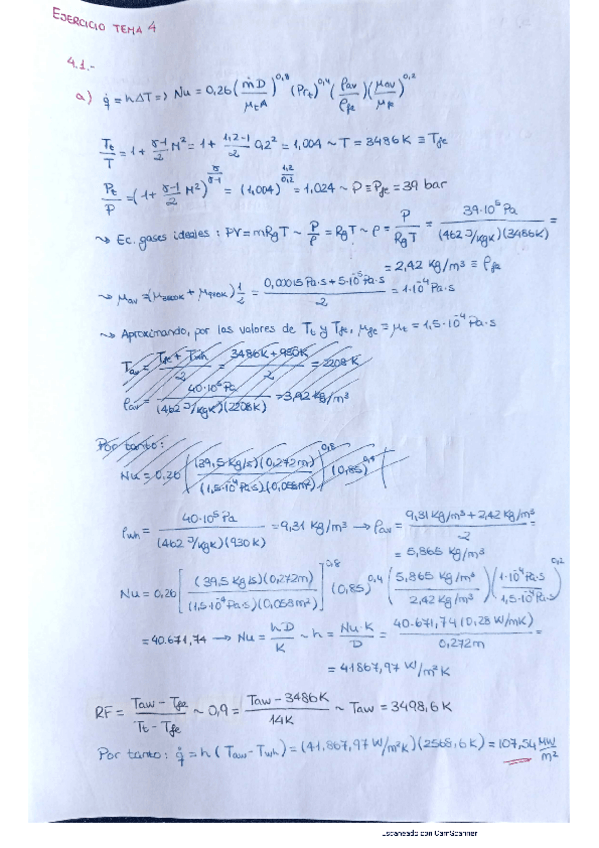 EJERCICIO TEMA 4
4.1.-
a) q̇ = hΔT => Nu = 0,26 (ṁD/μtA)^0,8 (Prt)^0,4 (ρav/ρfe)(μav/μfe)^0,2
Tt/T = 1 + (γ-1)/2 M² = 1 + (1,2-1)/2 0,2² = 1,004 ~ T = 3486K ≡ Tfe
Pt/P = (1 + (γ-1)/2 M²)^(γ/(γ-1)) = (1,004)^(1,2/0,2) = 1,024 ~ P ≡ Pfe = 39 bar
~> Ec. gases ideales : PV = mRgT ~ P/ρ = RgT ~ ρ = P/(RgT) = 39·10⁵Pa/((462 J/kgK)(3486K)) =
= 2,42 Kg/m³ ≡ ρfe
~> μav = (μ3500K + μ930K) 1/2 = (0,00015 Pa·s + 5·10⁻⁵ Pa·s)/2 = 1·10⁻⁴ Pa·s
~> Aproximando, por los valores de Tt y Tfe, μfe = μt = 1,5·10⁻⁴ Pa·s
Tav = (Tfe + Twh)/2 = (3486K + 930K)/2 = 2208K
ρav = 40·10⁵Pa/((462 J/kgK)(2208K)) = 3,92 Kg/m³
Por tanto:
Nu = 0,26 ((39,5 Kg/s)(0,272m)/((1,5·10⁻⁴Pa·s)(0,058m²)))^0,8 (0,85)^0,4
ρwh = 40·10⁵Pa/((462 J/kgK)(930K)) = 9,31 Kg/m³ → ρav = (9,31 Kg/m³ + 2,42 Kg/m³)/2 =
= 5,865 Kg/m³
Nu = 0,26 [(39,5 Kg/s)(0,272m)/((1,5·10⁻⁴ Pa·s)(0,058m²))]^0,8 (0,85)^0,4 (5,865 Kg/m³/2,42 Kg/m³)(1·10⁻⁴Pa·s/1,5·10⁻⁴Pa·s)^0,2
= 40.671,74 → Nu = hD/K ~ h = Nu·K/D = 40.671,74 (0,28 W/mK)/0,272m =
= 41867,97 W/m²K
RF = (Taw - Tfe)/(Tt - Tfe) ~ 0,9 = (Taw - 3486K)/14K ~ Taw = 3498,6K
Por tanto: q̇ = h (Taw - Twh) = (41.867,97 W/m²K)(2568,6K) = 107,54 MW/m²
Escaneado con CamScanner